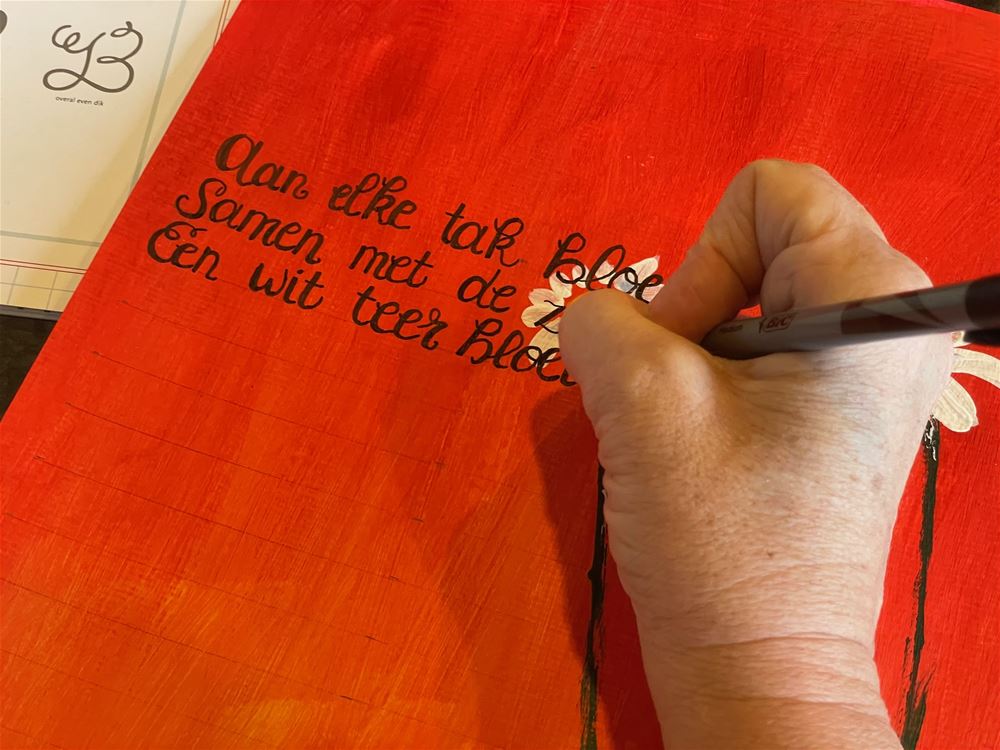 overal even dik
Aan elke tak bloe
Samen met de z
Eén wit teer bloe
BIC